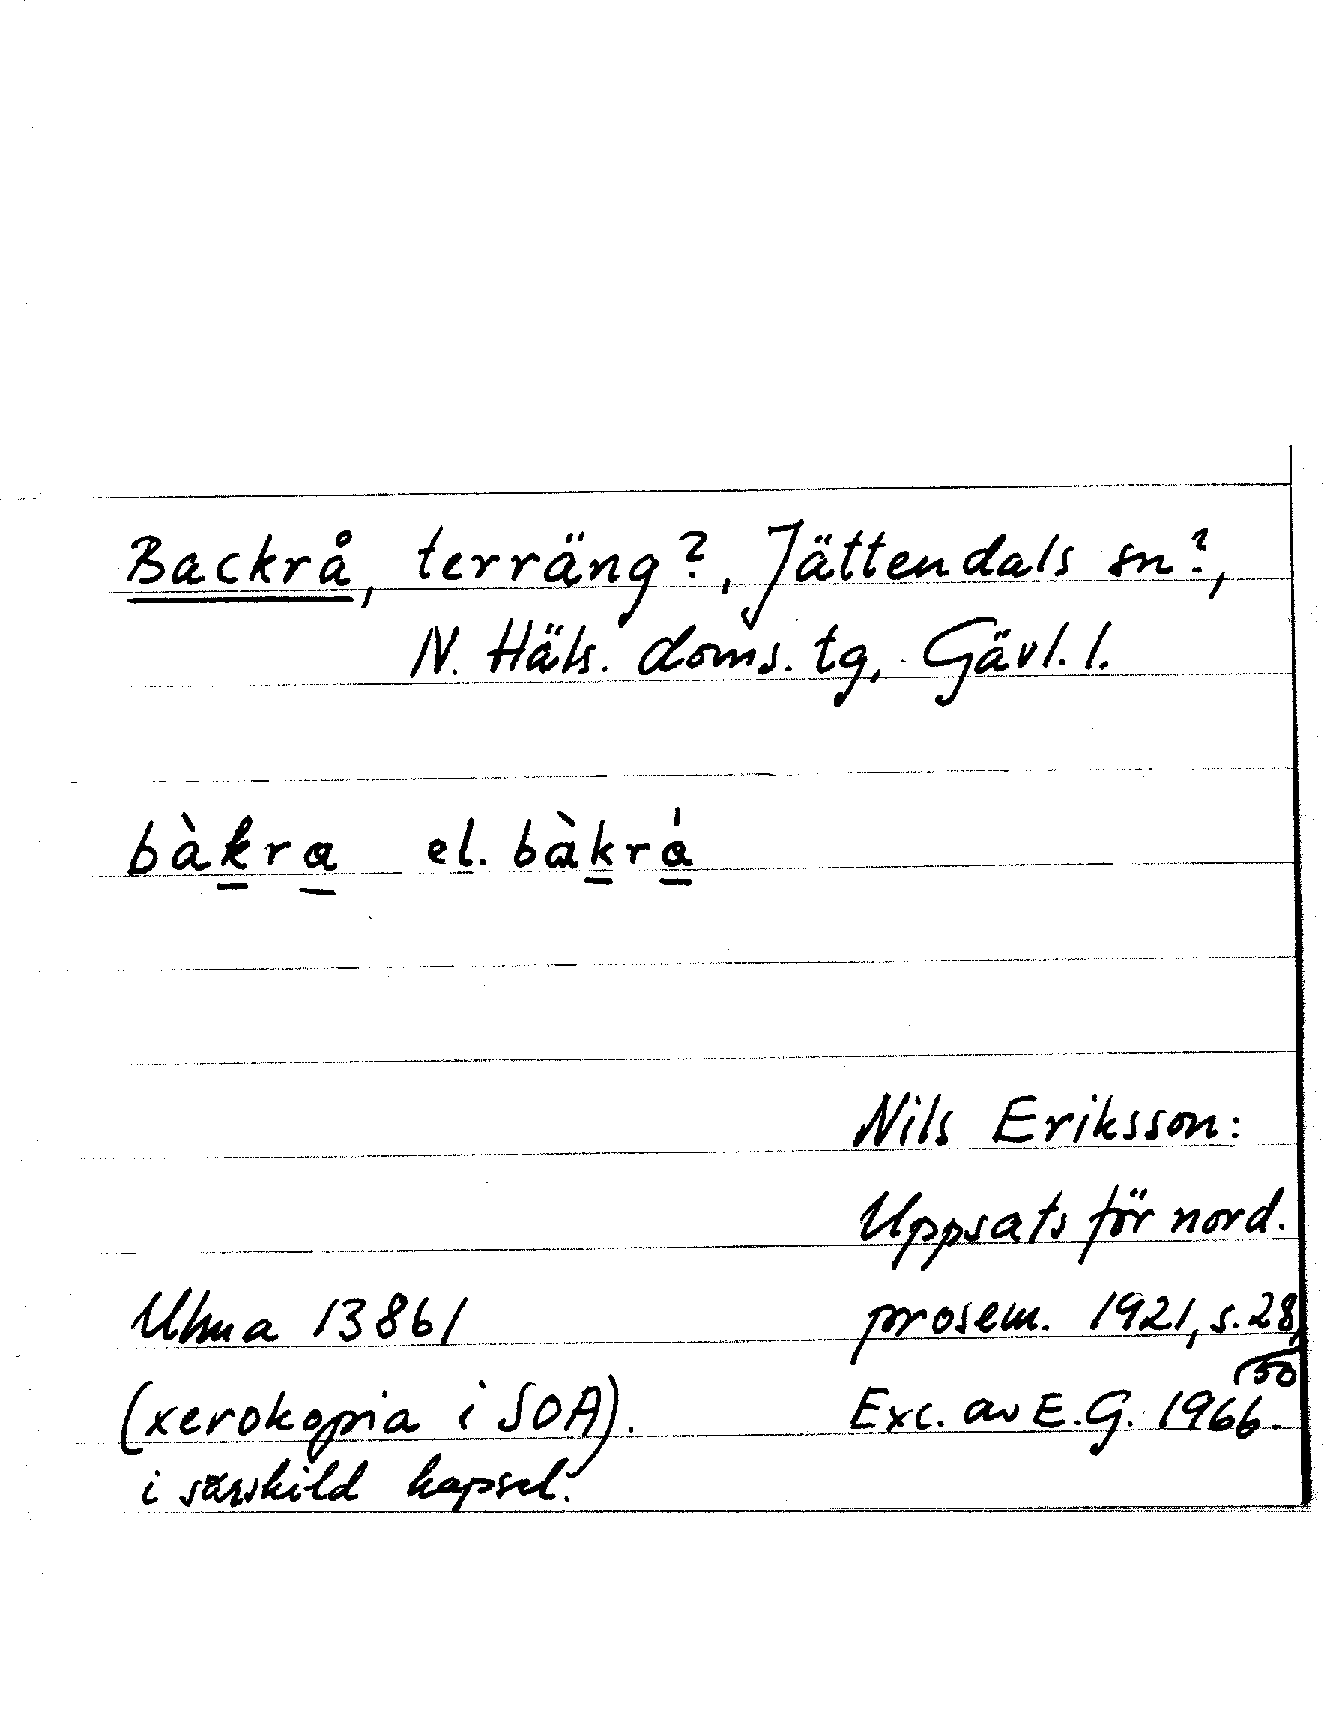 Backrå, terräng?, Jättendals sn?,
N. Häls. doms. tg, Gävl. l.
bàkra el. bàkrá
Nils Eriksson:
Uppsats för nord.
prosem. 1921, s. 28,
50
Ulma 13861
(xerokopia i SOA).
i särskild kapsel.
Exc. av E.G. 1966.